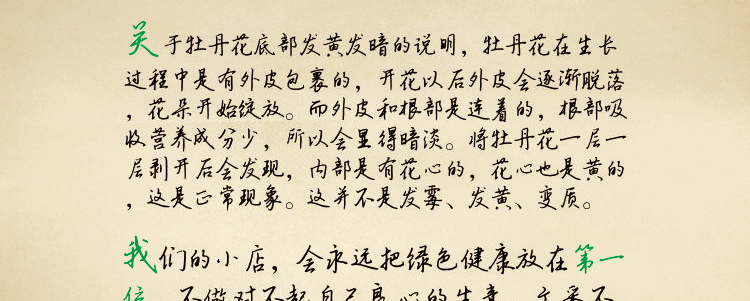 关于牡丹花底部发黄发暗的说明，牡丹花在生长
过程中是有外皮包裹的，开花以后外皮会逐渐脱落
，花朵开始绽放。而外皮和根部是连着的，根部吸
收营养成分少，所以会显得暗淡。将牡丹花一层一
层剥开后会发现，内部是有花心的，花心也是黄的
，这是正常现象。这并不是发霉、发黄、变质。
我们的小店，会永远把绿色健康放在第一
位，不做对不起自己良心的生意，